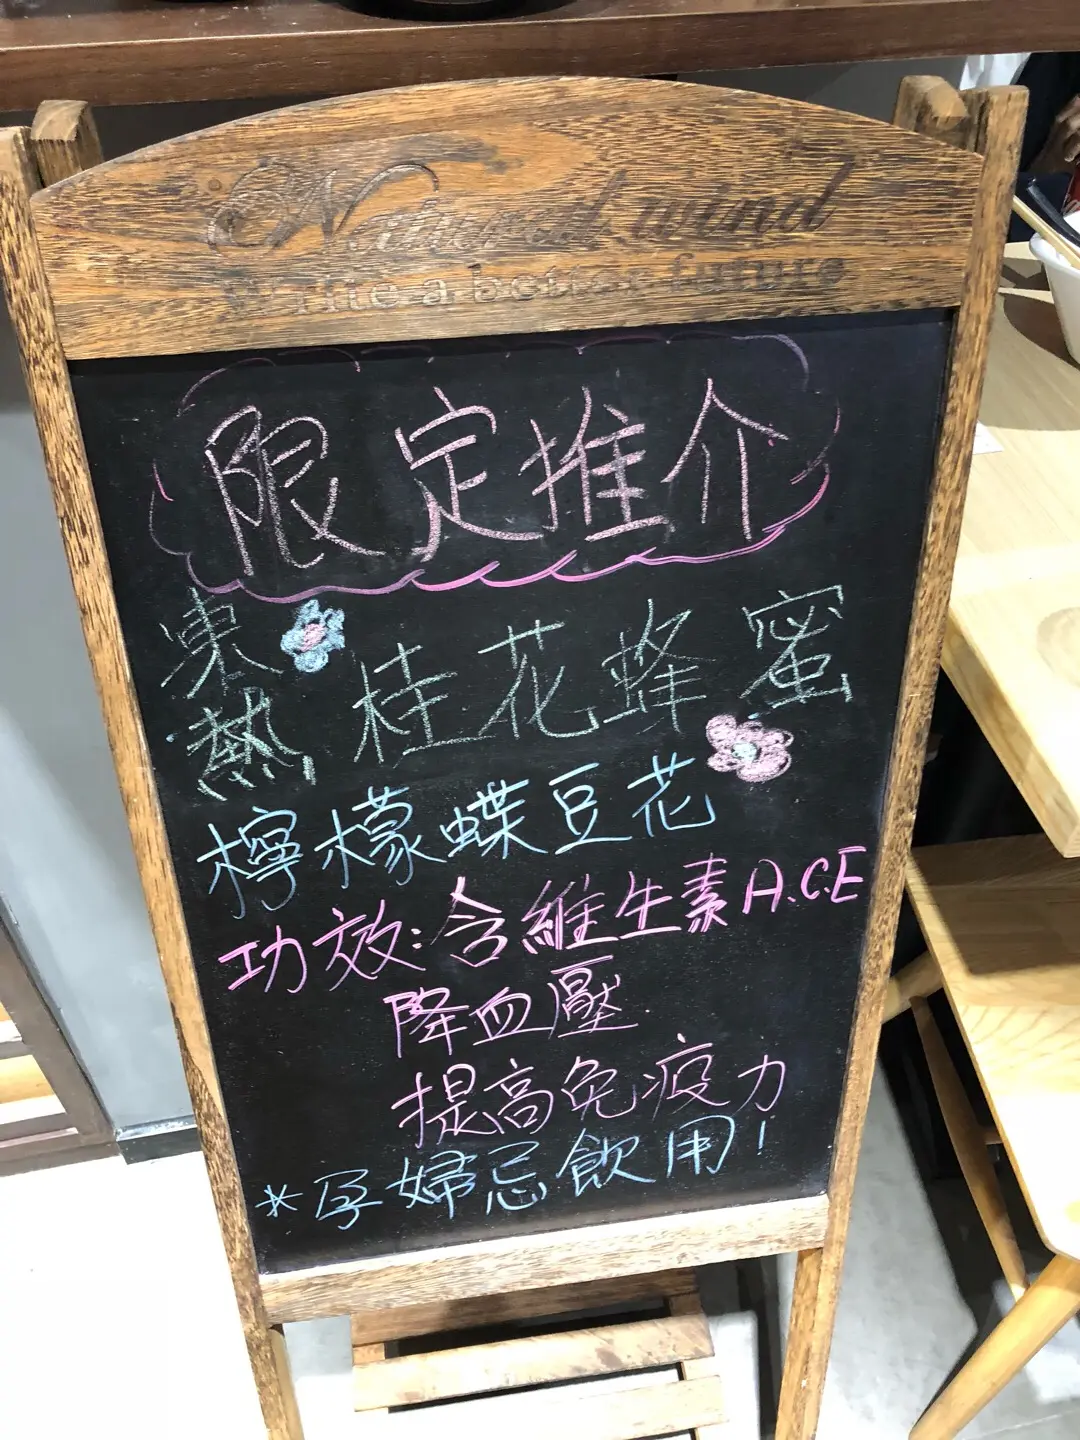 Natural wind
Write a better future
限定推介
凍 熱 桂花蜂蜜
檸檬蝶豆花
功效:含維生素A.C.E
降血壓
提高免疫力
*孕婦忌飲用!